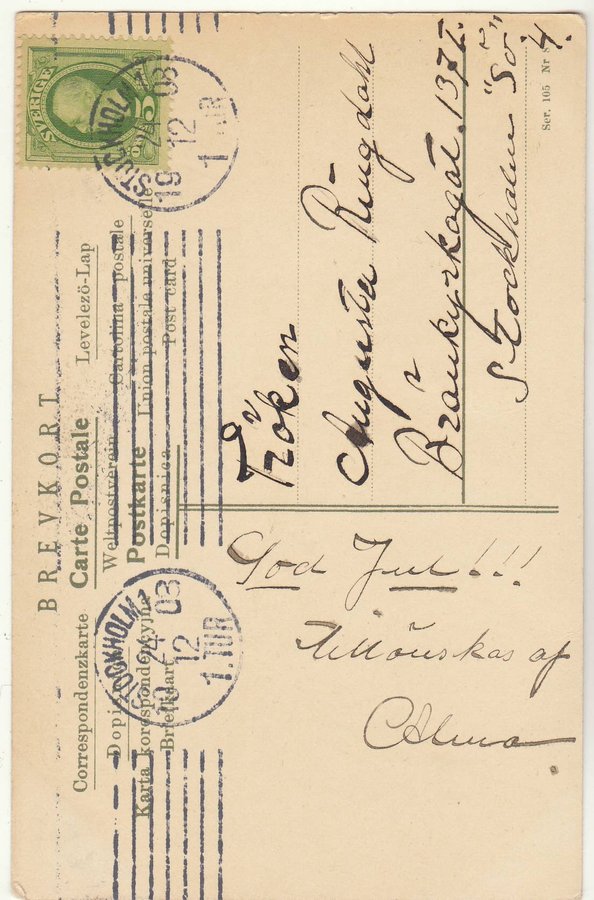 BREVKORT
Carte Postale Levelezö-Lap
Correspondenzkarte Weltpostverein Cartolina postale
Postkarte Union postale universelle
Karta korespondencyjna Dopisnica Post card
Briefkaart
SVERIGE
5
ÖRE
STOCKHOLM 1
24 12
19 08
1.TUR
STOCKHOLM 1
24 12
19 08
1.TUR
Fröken
Augusta Ringdahl
Brännkyrkogat. 137 I.
Stockholm "Sö" 4.
Ser. 105 Nr
God Jul!!!
tillönskas af
Alma